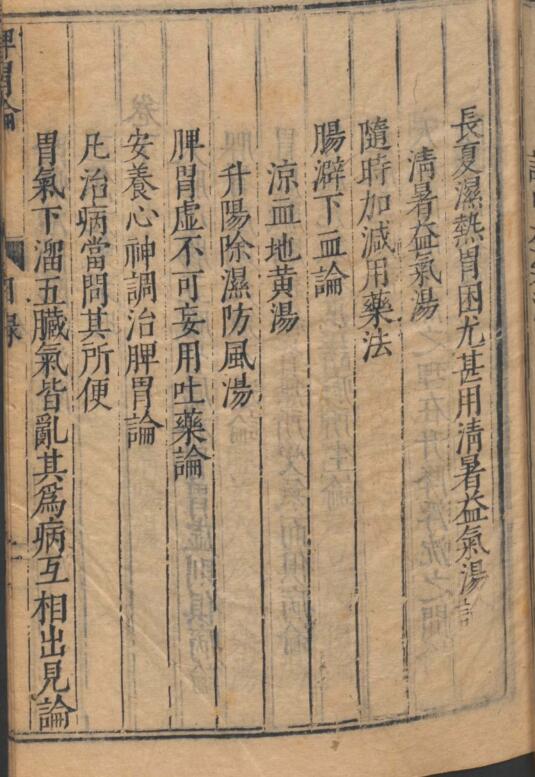 長夏濕熱胃困尤甚用清暑益氣湯論
清暑益氣湯
隨時加減用藥法
腸澼下血論
涼血地黄湯
升陽除濕防風湯
脾胃虛不可妄用吐藥論
安養心神調治脾胃論
凡治病當問其所便
胃氣下溜五臟氣皆亂其爲病互相出見論
脾胃論
目錄